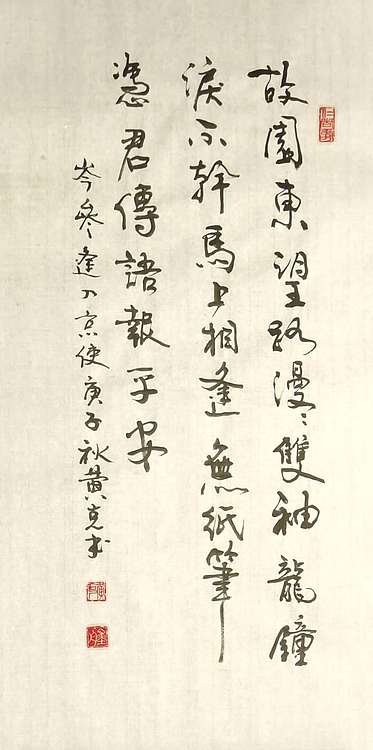 故園東望路漫〻雙袖龍鐘
淚不幹馬上相逢無紙筆
憑君傳語報平安
岑參逢入京使庚子秋黃克书